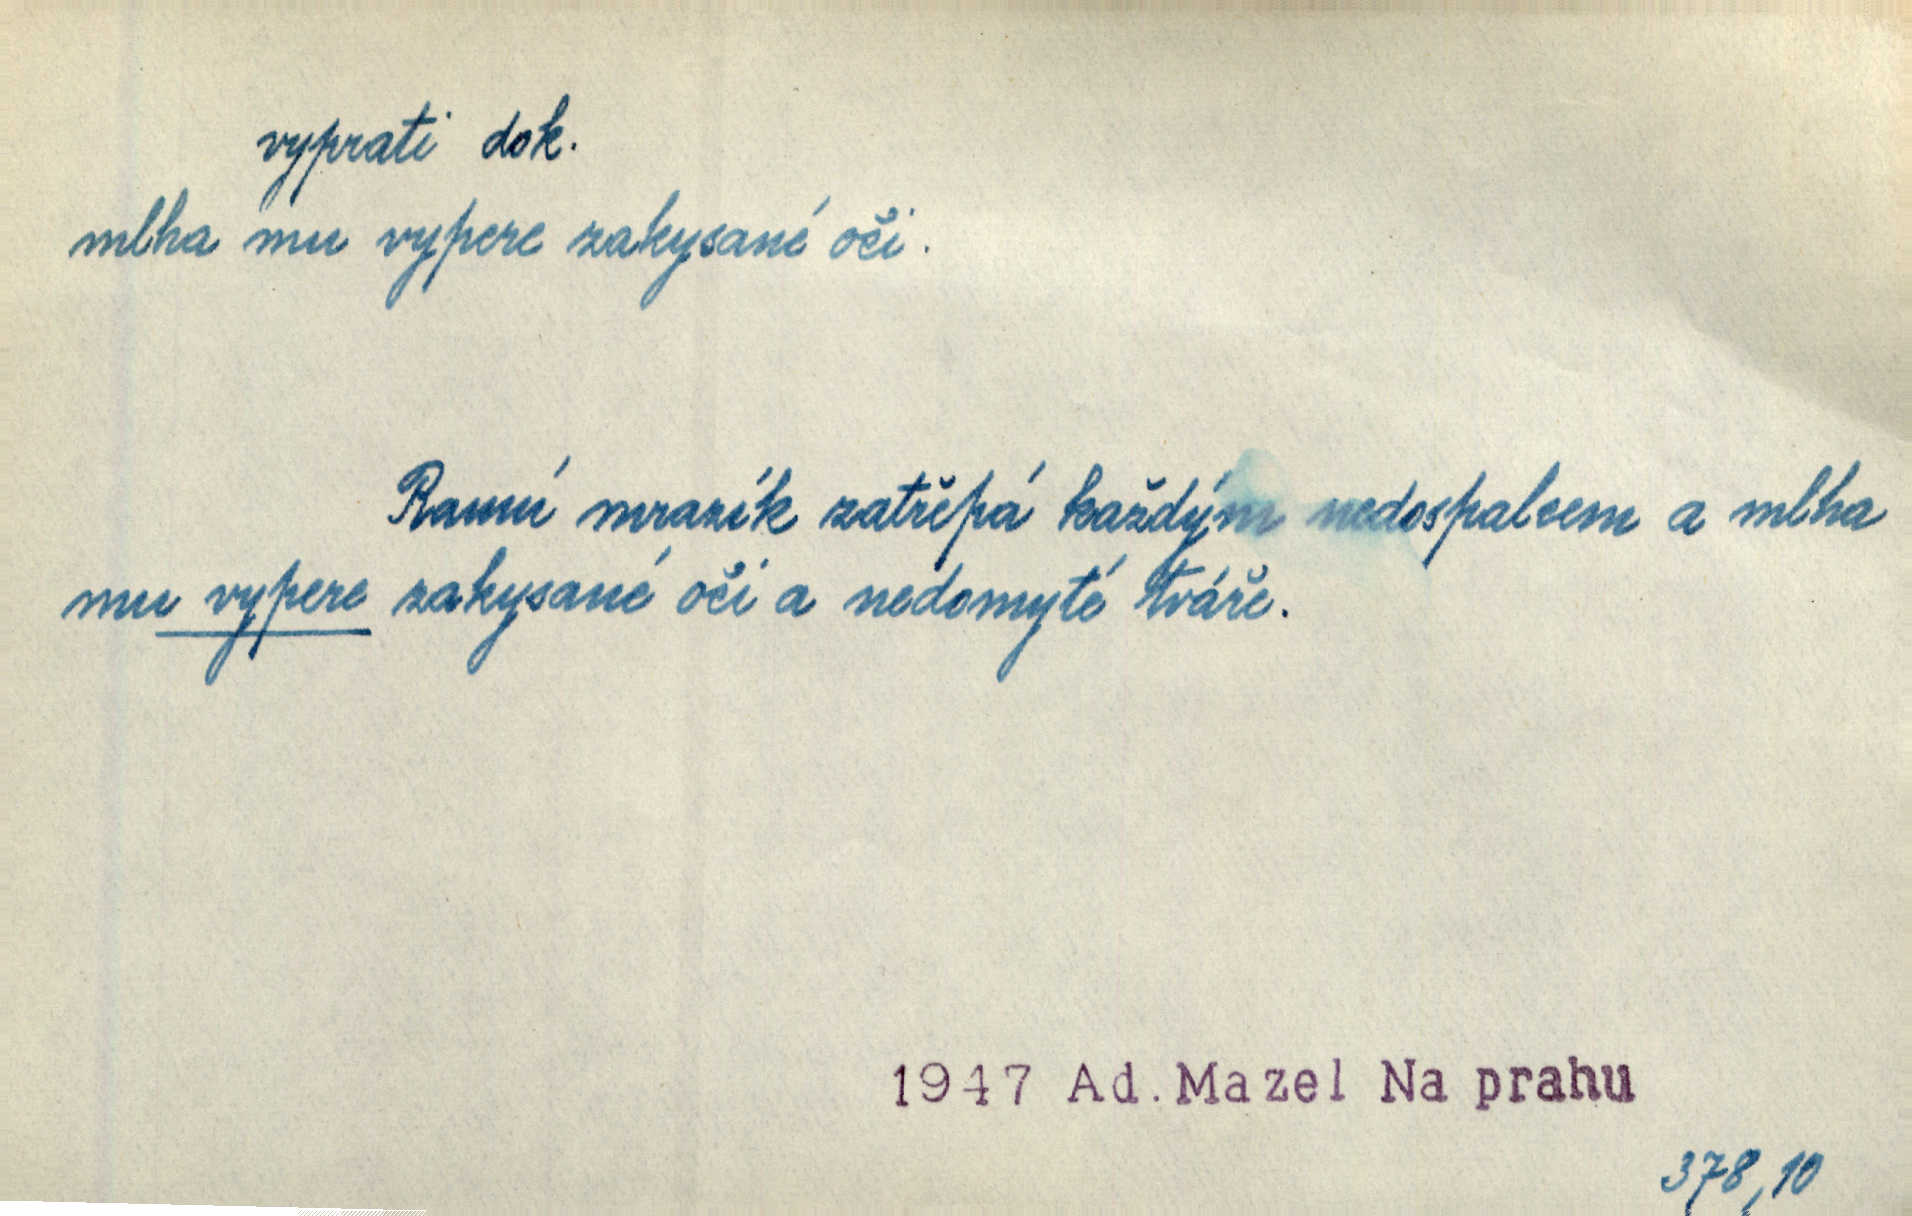 vyprati dok.
mlha mu vypere zakysané oči.
Ranní mrazík zatřepá každým nedospalcem a mlha
mu vypere zakysané oči a nedomyté tváře.
1947 Ad. Mazel Na prahu
378,10